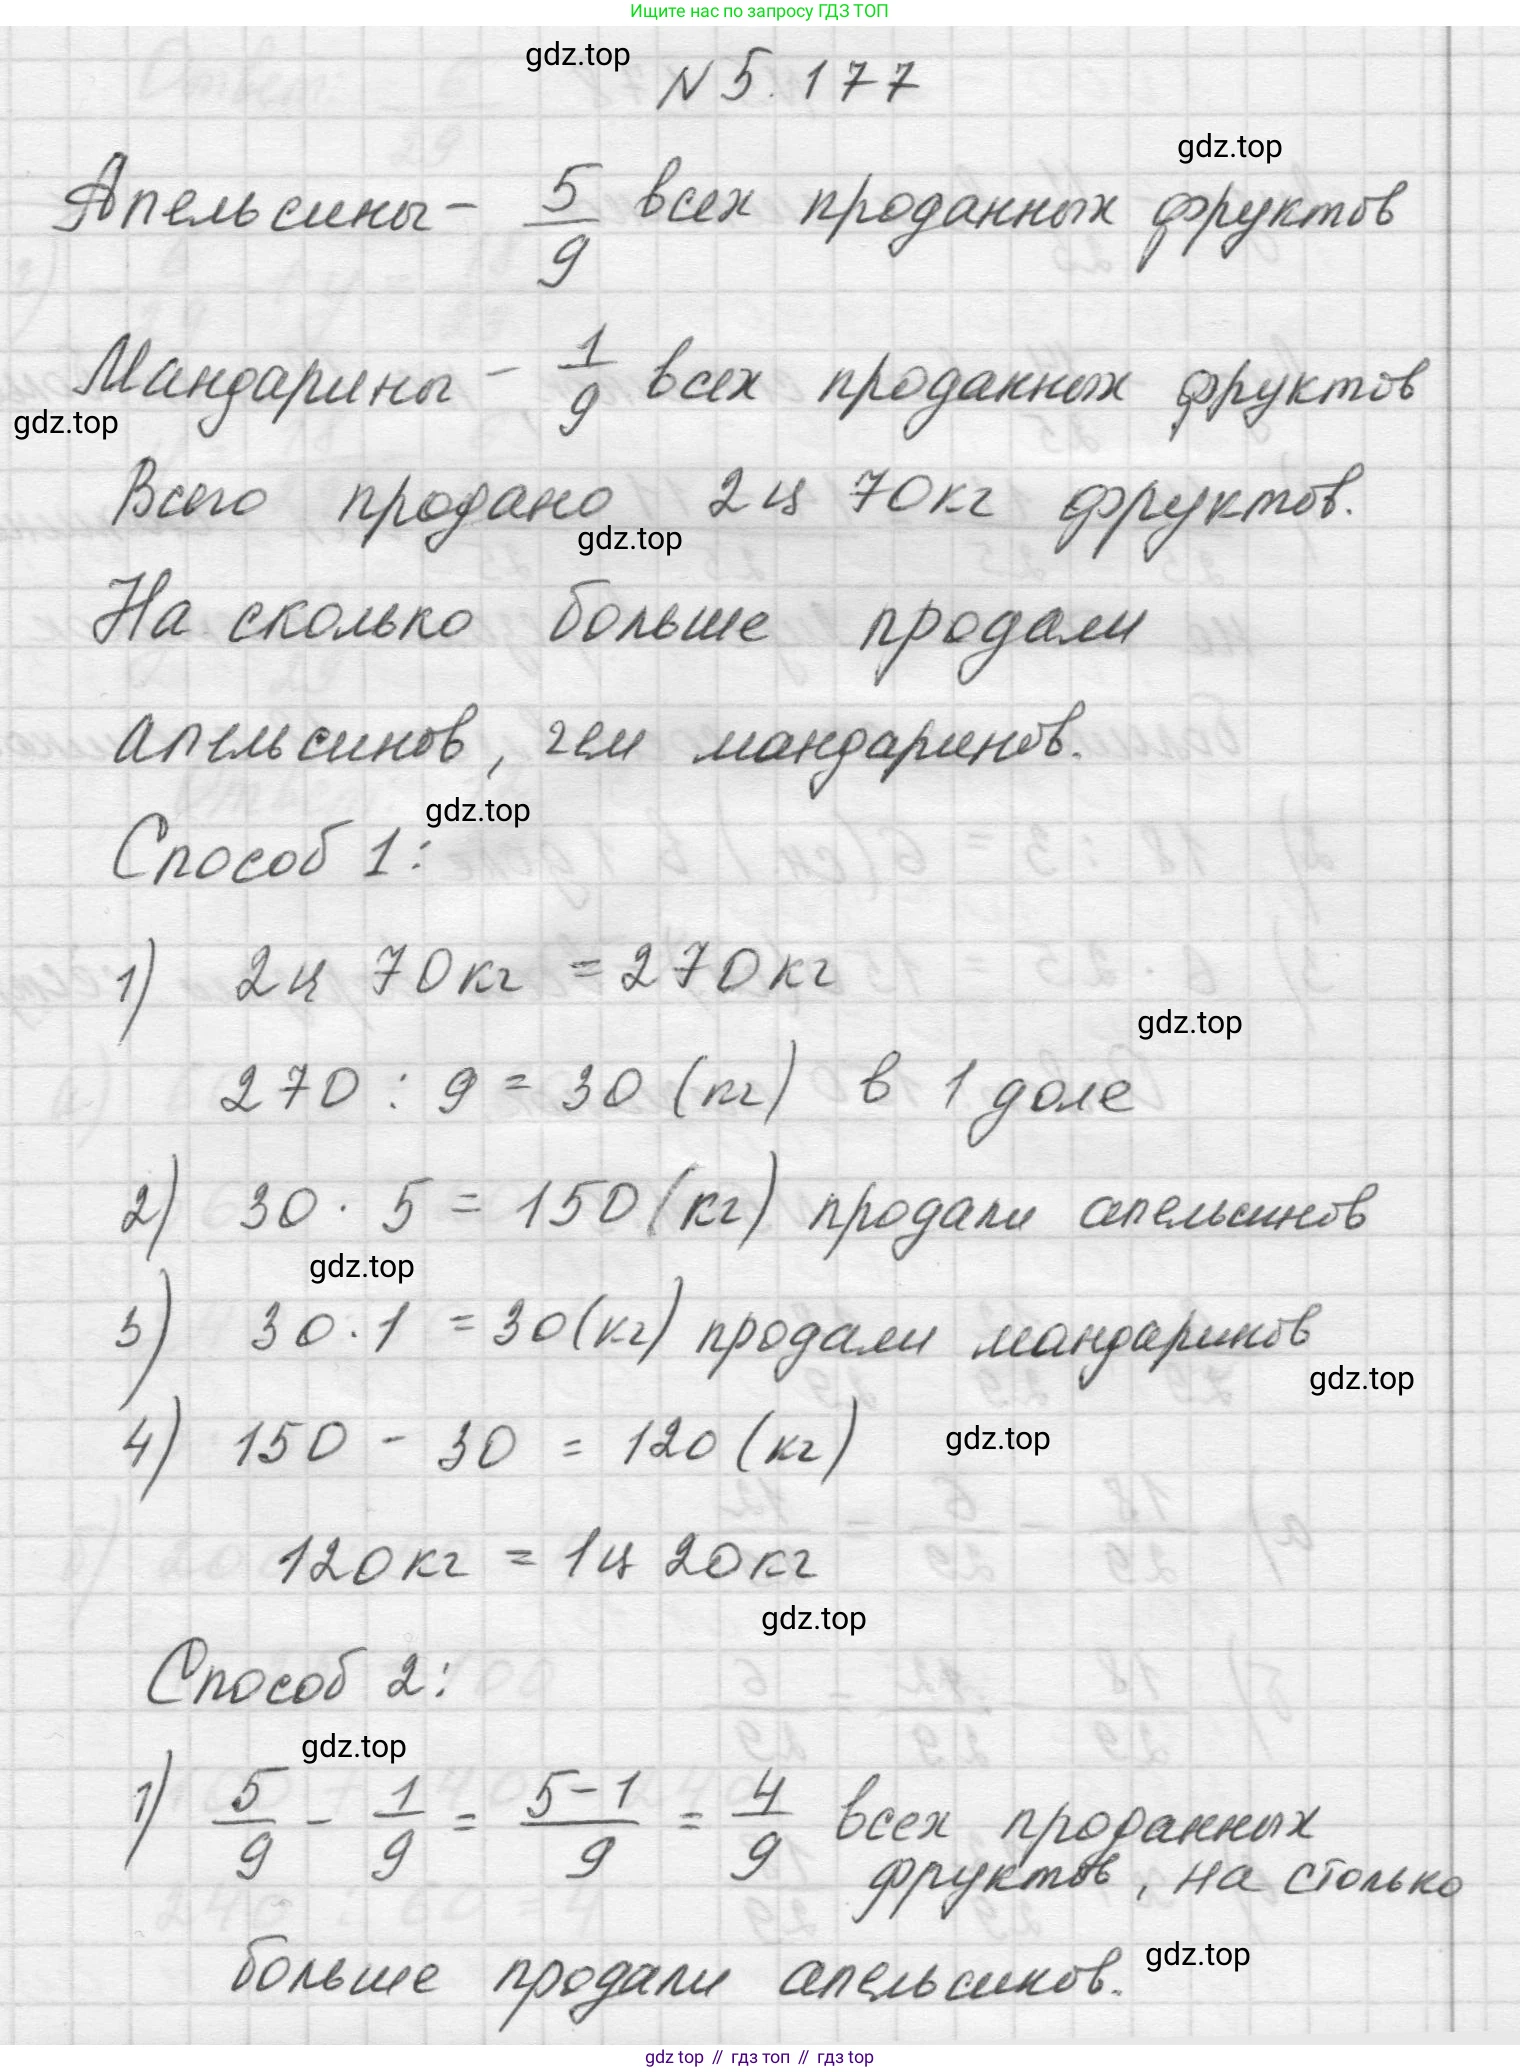 Ищите нас по запросу ГДЗ ТОП
gdz.top
N 5.177
gdz.top
Апельсины - 5/9 всех проданных фруктов
Мандарины - 1/9 всех проданных фруктов
gdz.top
Всего продано 2ц 70кг фруктов.
gdz.top
На сколько больше продали
апельсинов, чем мандаринов.
gdz.top
Способ 1:
1) 2ц 70кг = 270кг
gdz.top
270 : 9 = 30 (кг) в 1 доле
2) 30 · 5 = 150 (кг) продали апельсинов
gdz.top
3) 30 · 1 = 30 (кг) продали мандаринов
gdz.top
4) 150 - 30 = 120 (кг)
gdz.top
120кг = 1ц 20кг
gdz.top
Способ 2:
gdz.top
1) 5/9 - 1/9 = (5-1)/9 = 4/9 всех проданных
фруктов, на столько
больше продали апельсинов.
gdz.top
gdz top // гдз топ // гдз top